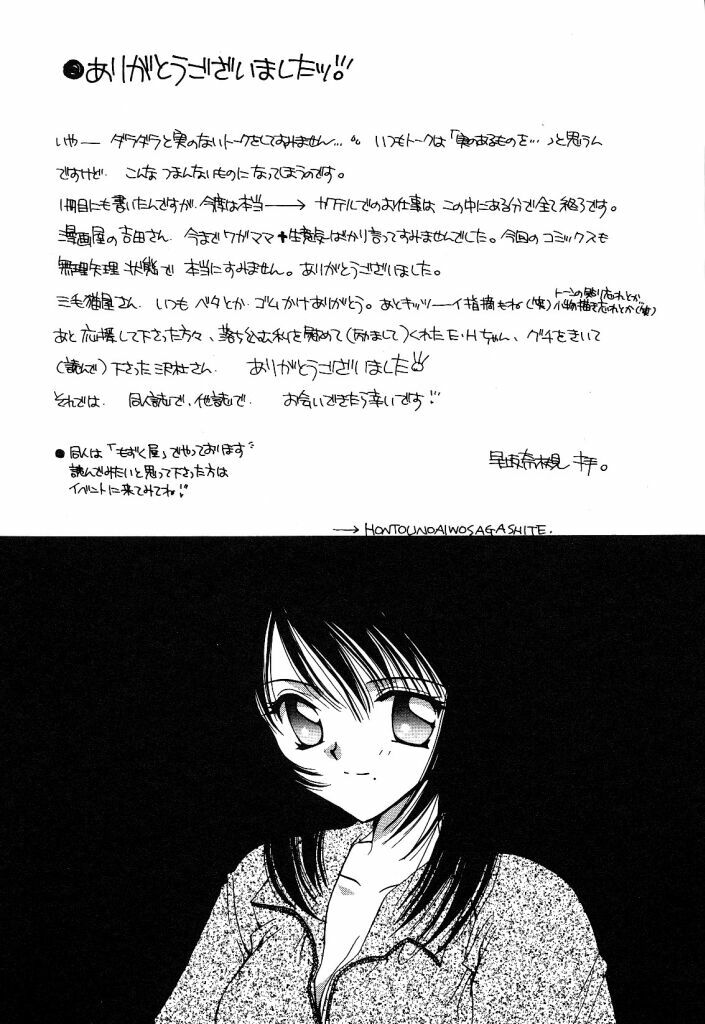 ●ありがとうございましたッ!!
いやー ダラダラと実のないトークをしてすみません…。 いつもトークは「実のあるものを…」と思うん
ですけど、こんなつまんないものになってしまうのです。
1冊目にも書いたんですが、今度は本当―→ でのお仕事は、この中にある分で全て終了です。
漫画屋の吉田さん、今までワガママ+生意気ばかり言ってすみませんでした。今回のコミックスも
無理矢理状態で 本当にすみません。ありがとうございました。
三毛猫屋さん、いつも ベタとか、ゴムかけありがとう。あとキッツーイ指摘もね(笑)
トーンの貼り忘れとか
小物描き忘れとか(笑)
あと 応援して下さった方々、落ち込む私を慰めて(励まして)くれたE・Hちゃん、グチをきいて
(読んで)下さった 沢杜さん、 ありがとうございました!!
それでは、同人誌で、他誌で、 お会いできたら幸いです!!
●同人は「もずく屋」でやっております
読んでみたいと思って下さった方は
イベントに来てみてね!!
拝。
→ HONTOUNOAIWOSAGASHITE.